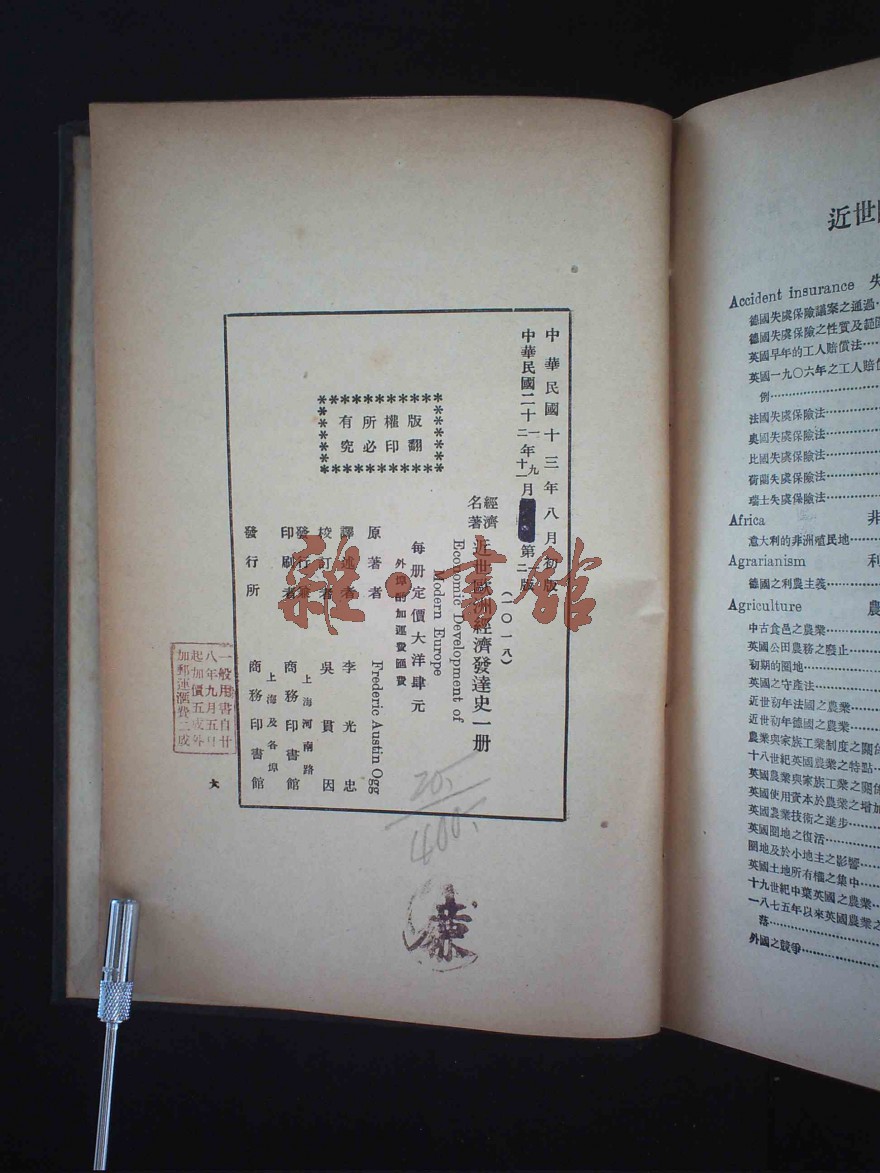 中華民國十三年八月初版
中華民國二十一年九月
二年十一月第二版
(一〇一八)
經濟名著 近世歐洲經濟發達史一册
Economic Development of
Modern Europe
每册定價大洋肆元
外埠酌加運費匯費
原著者 Frederic Austin Ogg
譯述者 李光忠
校訂者 吳貫因
發行兼印刷者 上海河南路 商務印書館
發行所 上海及各埠 商務印書館
版權所有
翻印必究
一般用書自廿
八年九月五日
起加價五成外
加郵運匯費二成
大
20.
400.
雜·書館
近世
Accident insurance 失
德國失虞保險議案之通過
德國失虞保險之性質及範圍
英國早年的工人賠償法
英國一九〇六年之工人賠償
例
法國失虞保險法
奧國失虞保險法
比國失虞保險法
荷蘭失虞保險法
瑞士失虞保險法
Africa 非
意大利的非洲殖民地
Agrarianism 利
德國之利農主義
Agriculture 農
中古食邑之農業
英國公田農務之廢止
初期的圈地
英國之守產法
近世初年法國之農業
近世初年德國之農業
農業與家族工業制度之關係
十八世紀英國農業之特點
英國農業與家族工業之關係
英國使用資本於農業之增加
英國農業技術之進步
英國圈地之復活
圈地及於小地主之影響
英國土地所有權之集中
十九世紀中葉英國之農業
一八七五年以來英國農業之
落
外國之競爭